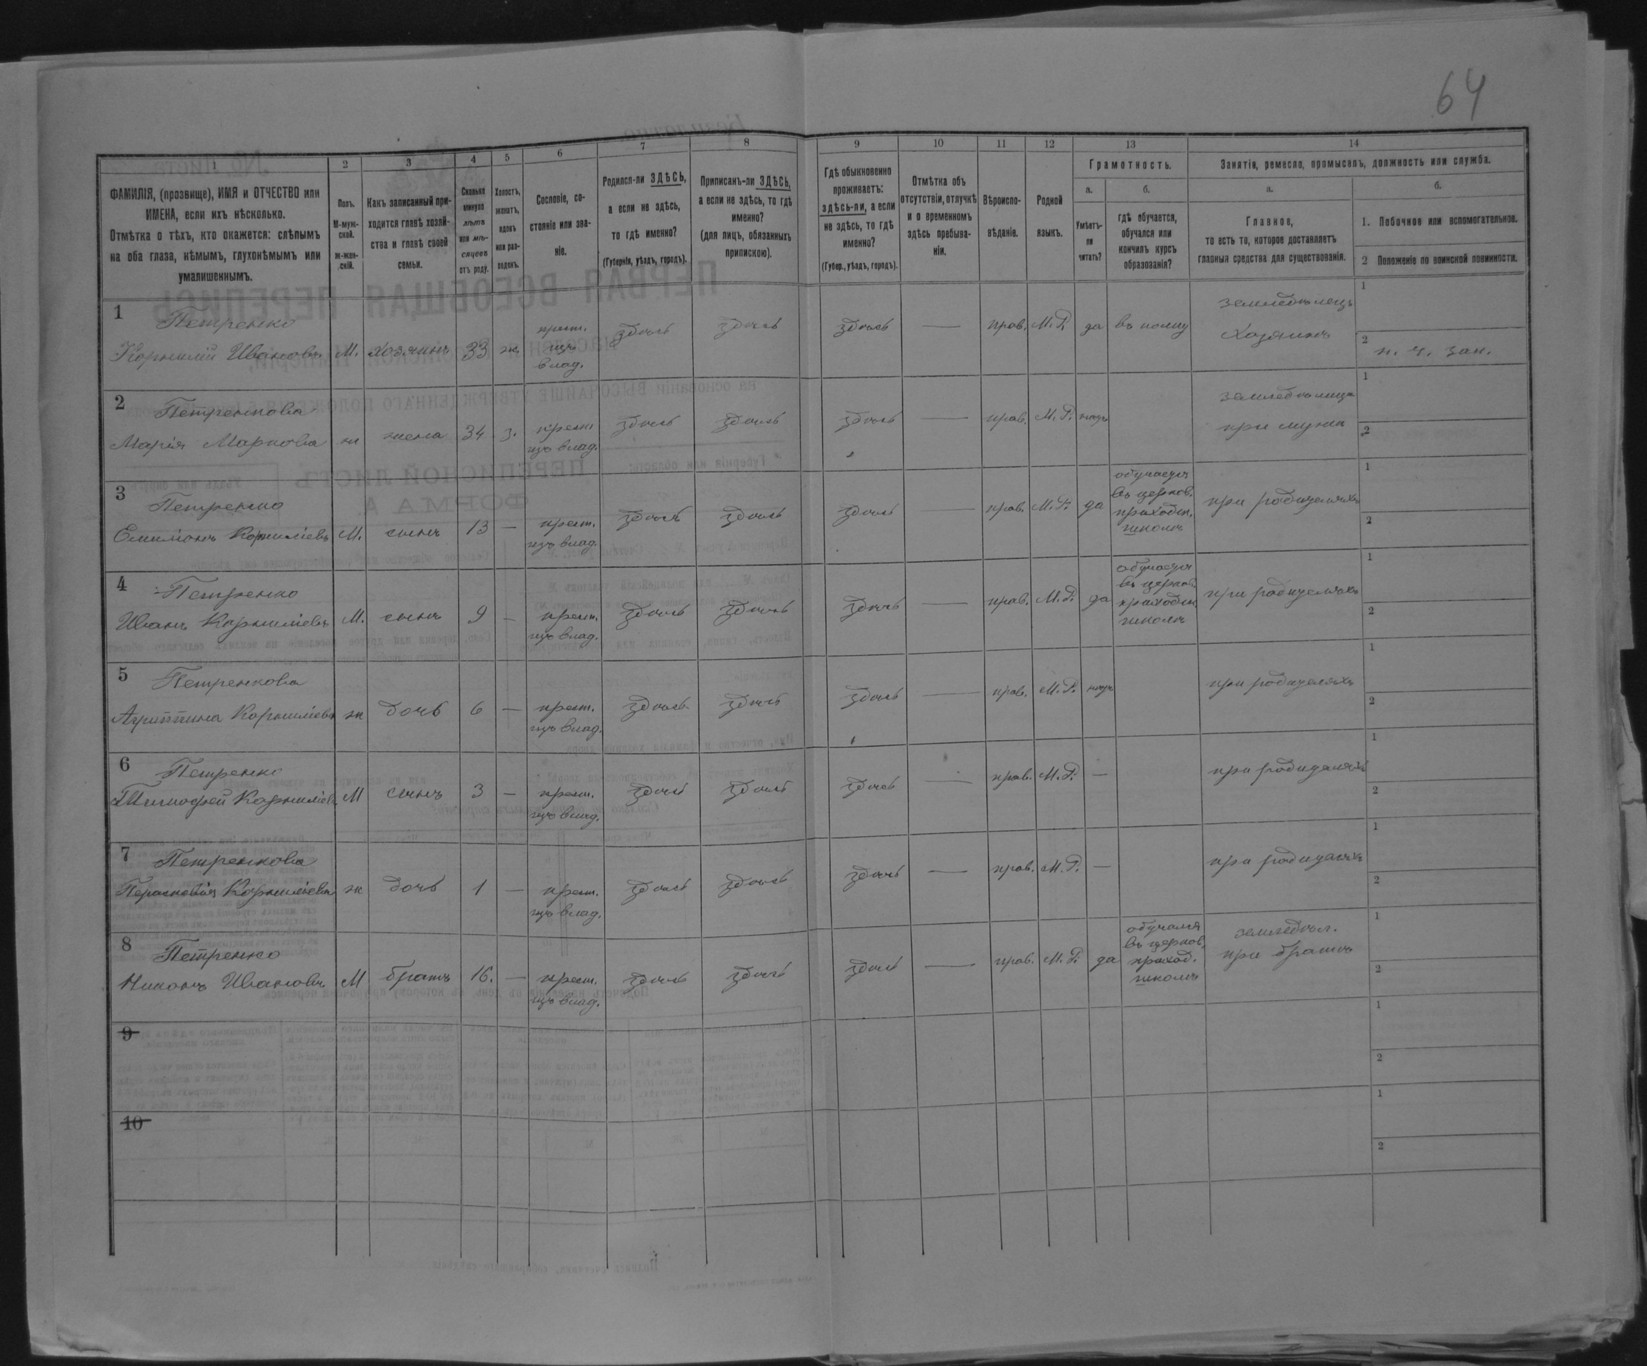 64
1 2 3 4 5 6 7 8 9 10 11 12 13 14
ФАМИЛІЯ, (прозвище), ИМЯ и ОТЧЕСТВО или ИМЕНА, если ихъ нѣсколько.
Отмѣтка о тѣхъ, кто окажется: слѣпымъ на оба глаза, нѣмымъ, глухонѣмымъ или умалишеннымъ.
Полъ.
М-мужской.
ж-женскій.
Какъ записанный приходится главѣ хозяйства и главѣ своей семьи.
Сколько минуло лѣтъ или мѣсяцевъ отъ роду.
Холостъ, женатъ, вдовъ или разведенъ.
Сословіе, состояніе или званіе.
Родился-ли ЗДѢСЬ, а если не здѣсь, то гдѣ именно?
(Губернія, уѣздъ, городъ).
Приписанъ-ли ЗДѢСЬ, а если не здѣсь, то гдѣ именно?
(для лицъ, обязанныхъ припискою).
Гдѣ обыкновенно проживаетъ: здѣсь-ли, а если не здѣсь, то гдѣ именно?
(Губер., уѣздъ, городъ).
Отмѣтка объ отсутствіи, отлучкѣ и о временномъ здѣсь пребываніи.
Вѣроисповѣданіе.
Родной языкъ.
Грамотность.
а.
Умѣетъ-ли читать?
б.
гдѣ обучается, обучался или кончилъ курсъ образованія?
Занятіе, ремесло, промыселъ, должность или служба.
а.
Главное,
то есть то, которое доставляетъ главныя средства для существованія.
б.
1. Побочное или вспомогательное.
2 Положеніе по воинской повинности.
1 Петренко
Корнилій Ивановъ М. хозяинъ 33 ж. крест. изъ влад. здѣсь здѣсь здѣсь — прав. М.Р. да въ полку
земледѣлецъ
Хозяинъ
1
2 н. ч. зап.
2 Петренкова
Марія Маркова ж жена 34 з. крест. изъ влад. здѣсь здѣсь здѣсь — прав. М.Р. нѣтъ
земледѣлица
при мужѣ
1
2
3 Петренко
Семионъ Корниліевъ М. сынъ 13 — крест. изъ влад. здѣсь здѣсь здѣсь — прав. М.Р. да обучается въ церков. приходск. школѣ при родителяхъ
1
2
4 Петренко
Иванъ Корниліевъ М. сынъ 9 — крест. изъ влад. здѣсь здѣсь здѣсь — прав. М.Р. да обучается въ церков. приходск. школѣ при родителяхъ
1
2
5 Петренкова
Агриппина Корниліева ж дочь 6 — крест. изъ влад. здѣсь здѣсь здѣсь — прав. М.Р. нѣтъ при родителяхъ
1
2
6 Петренко
Тимофей Корниліевъ М сынъ 3 — крест. изъ влад. здѣсь здѣсь здѣсь — прав. М.Р. — при родителяхъ
1
2
7 Петренкова
Параскевія Корниліева ж дочь 1 — крест. изъ влад. здѣсь здѣсь здѣсь — прав. М.Р. — при родителяхъ
1
2
8 Петренко
Никонъ Ивановъ М братъ 16. — крест. изъ влад. здѣсь здѣсь здѣсь — прав. М.Р. да обучался въ церков. приход. школѣ земледѣл. при братѣ
1
2
9
1
2
10
1
2